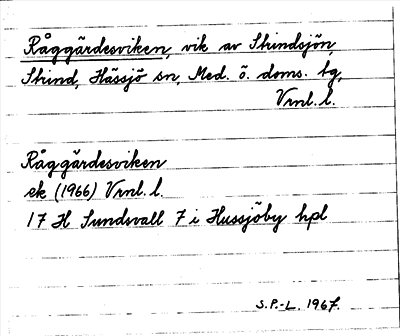 Råggärdesviken, vik av Skindsjön,
Skind, Hässjö sn, Med. ö. doms. tg,
Vrnl. l.
Råggärdesviken
ek (1966) Vrnl. l.
17 H Sundsvall 7 i Hussjöby hpl
S.P.-L. 1967.